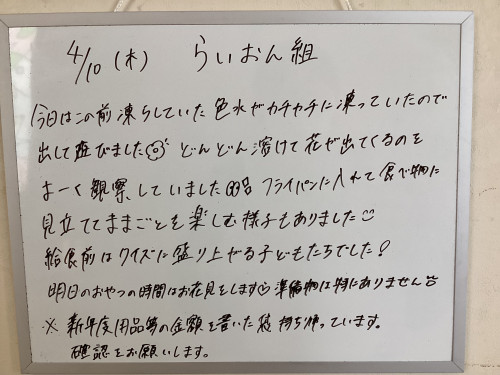 4/10 (木) らいおん組
今日はこの前凍らしていた色水がカチャカチに凍っていたので
出して遊びました どんどん溶けて花が出てくるのを
まーく観察していました フライパンに入れて食べ物に
見立ててままごとを楽しむ様子もありました
給食前はクイズに盛り上がる子どもたちでした!
明日のおやつの時間はお花見をします 準備物は特にありません
※ 新年度用品等の金額を書いた袋持ち帰っています。
確認をお願いします。